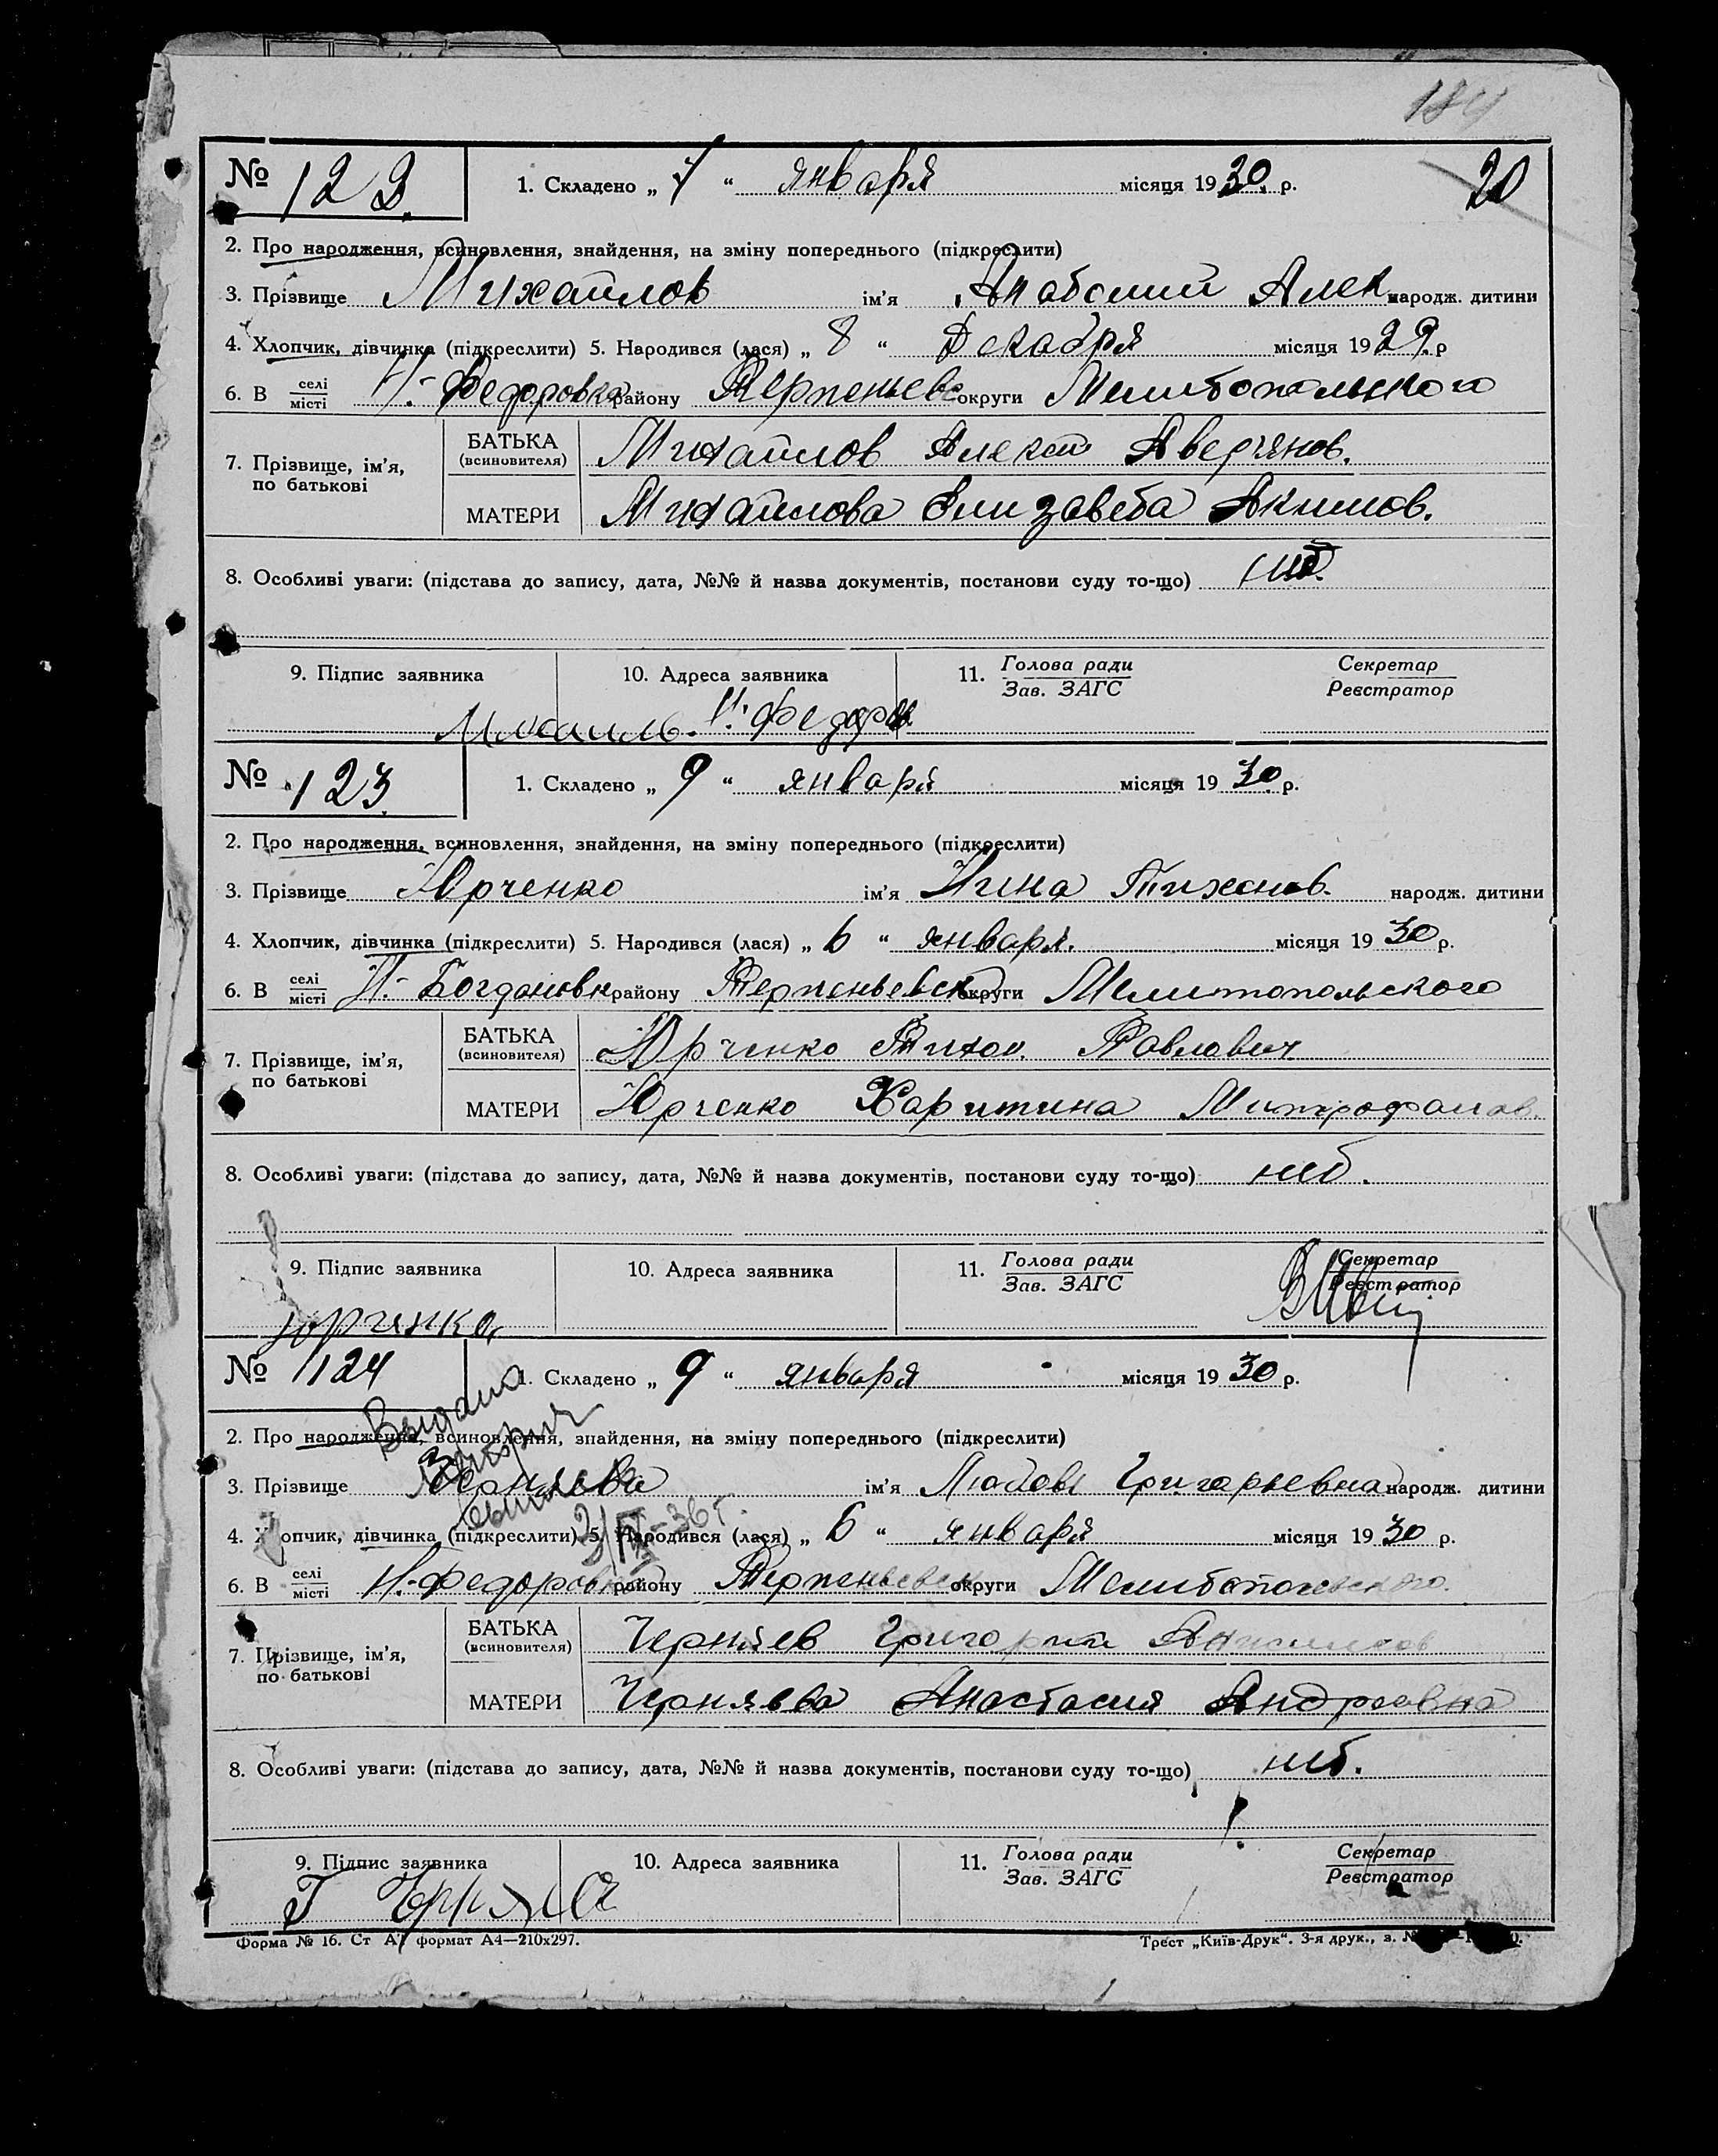 184
№ 122. 1. Складено „ 7 “ января місяця 1930. р. 20
2. Про народження, всиновлення, знайдення, на зміну попереднього (підкреслити)
3. Прізвище Михайлов ім’я Алек народж. дитини
4. Хлопчик, дівчинка (підкреслити) 5. Народився (лася) „ 8 “ Декабря місяця 1929. р
6. В селі місті Н.-Федоровка району Терпеньевс округи Мелитопольского
7. Прізвище, ім’я, по батькові
БАТЬКА (всиновителя) Михайлов Алексей Аверьянов.
МАТЕРИ Михайлова Елизавета Акимов.
8. Особливі уваги: (підстава до запису, дата, №№ й назва документів, постанови суду то-що) нет.
9. Підпис заявника 10. Адреса заявника 11. Голова ради Зав. ЗАГС Секретар Реєстратор
Н.-Федоров
№ 123. 1. Складено „ 9 “ января місяця 1930. р.
2. Про народження, всиновлення, знайдення, на зміну попереднього (підкреслити)
3. Прізвище Юрченко ім’я Нина Тихонов. народж. дитини
4. Хлопчик, дівчинка (підкреслити) 5. Народився (лася) „ 6 “ января. місяця 1930 р.
6. В селі місті Н.-Богдановк району Терпеньевск округи Мелитопольского
7. Прізвище, ім’я, по батькові
БАТЬКА (всиновителя) Юрченко Тихон. Павлович
МАТЕРИ Юрченко Харитина Митрофанов.
8. Особливі уваги: (підстава до запису, дата, №№ й назва документів, постанови суду то-що) нет.
9. Підпис заявника 10. Адреса заявника 11. Голова ради Зав. ЗАГС Секретар Реєстратор
Юрченко
№ 124 1. Складено „ 9 “ января місяця 1930 р.
Выдана
2. Про народження, всиновлення, знайдення, на зміну попереднього (підкреслити)
3. Прізвище ім’я Любовь Григорьевна народж. дитини
2/IV-36 г.
4. Хлопчик, дівчинка (підкреслити) 5. Народився (лася) „ 6 “ января місяця 1930 р.
6. В селі місті Н.-Федоровка району Терпеньевск округи Мелитопольского.
7. Прізвище, ім’я, по батькові
БАТЬКА (всиновителя) Черняев Григорий Анисимов
МАТЕРИ Черняева Анастасия Андреевна
8. Особливі уваги: (підстава до запису, дата, №№ й назва документів, постанови суду то-що) нет.
9. Підпис заявника 10. Адреса заявника 11. Голова ради Зав. ЗАГС Секретар Реєстратор
Форма № 16. Ст А4 формат А4—210х297. Трест „Київ-Друк“. 3-я друк., з. №